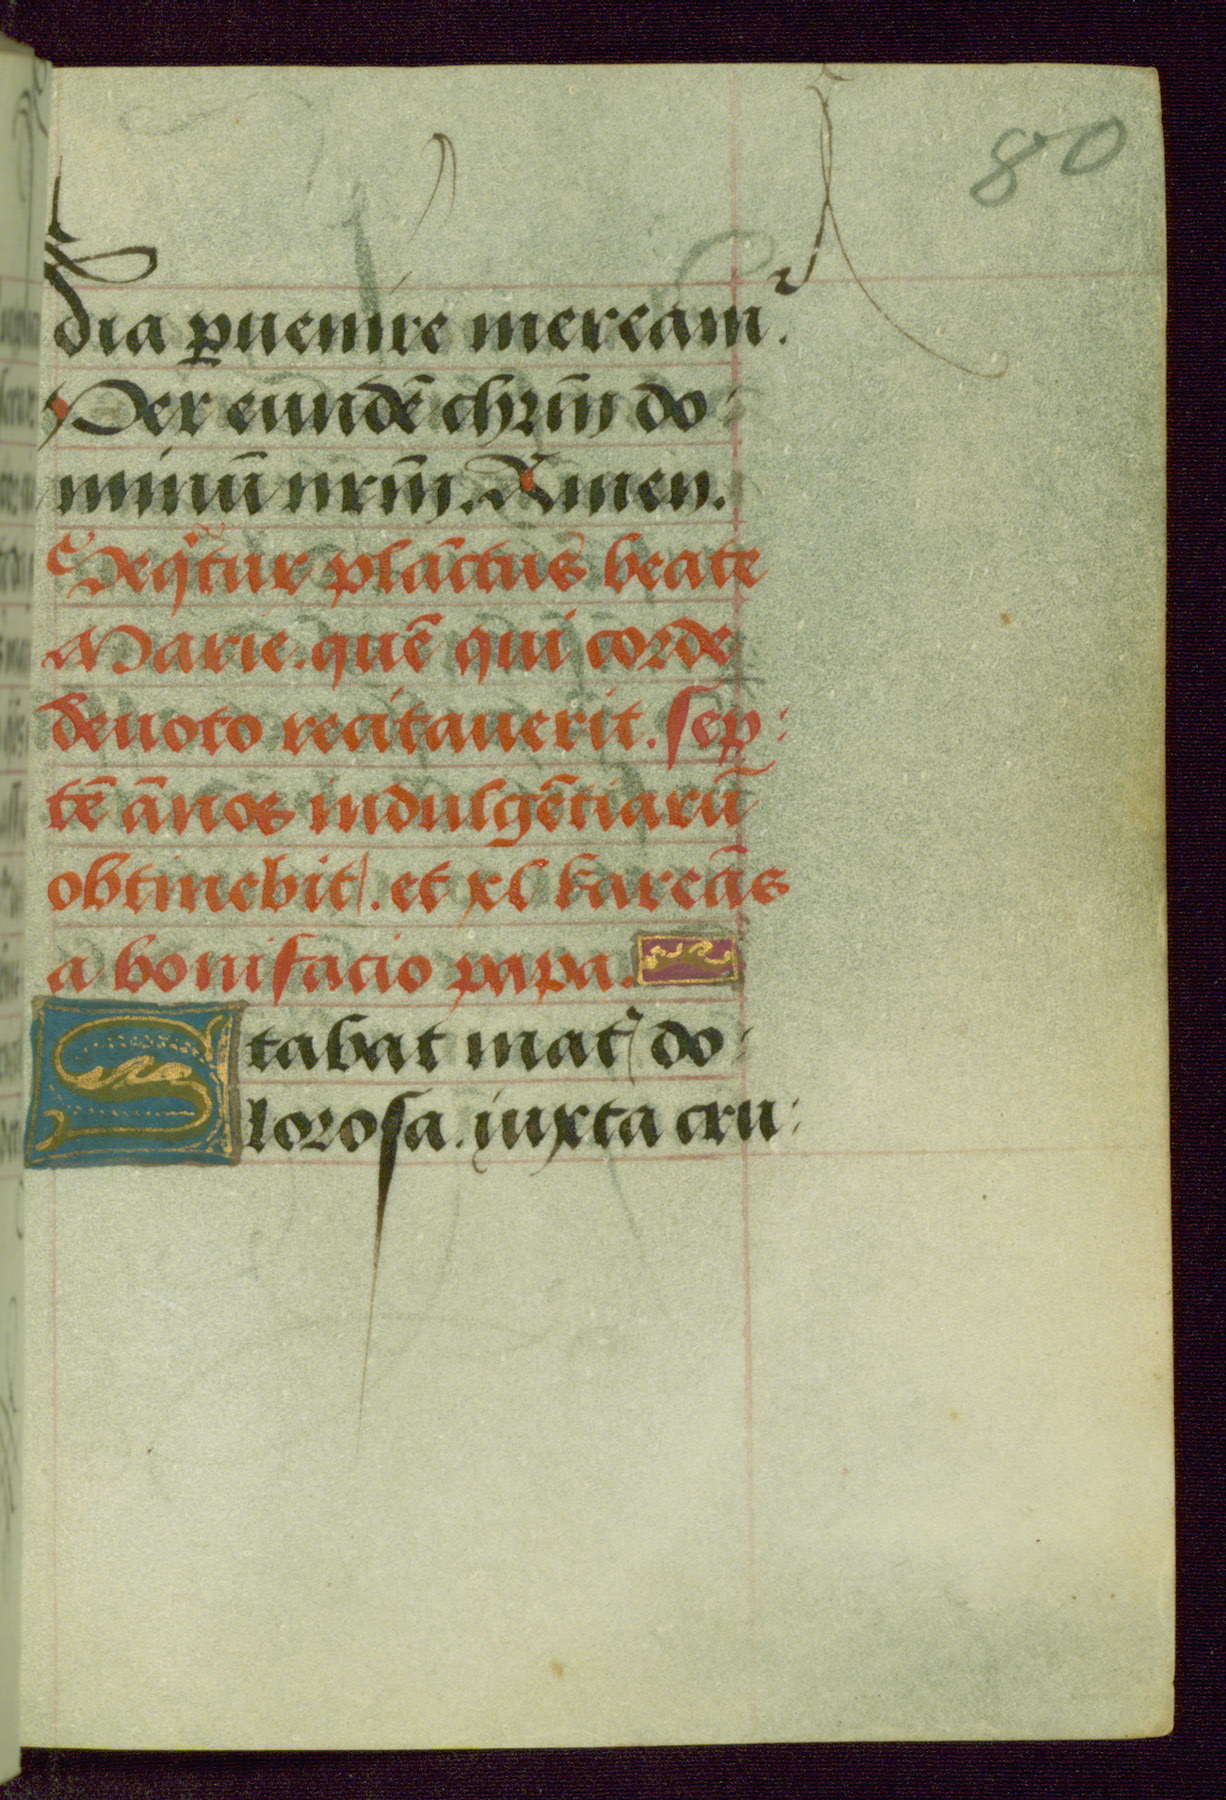 80
dia ꝑuenire meream᷑.
Per eundē chrm̄ do:
minū nrm̄. Amen.
Seqͥtur plāctus beate
Marie. quē qui corde
deuoto recitauerit. sep:
tē ānos indulgētiarū
obtinebit. et xl kareās
a bonifacio papa.
Stabat mat᷑ do:
lorosa. iuxta cru: